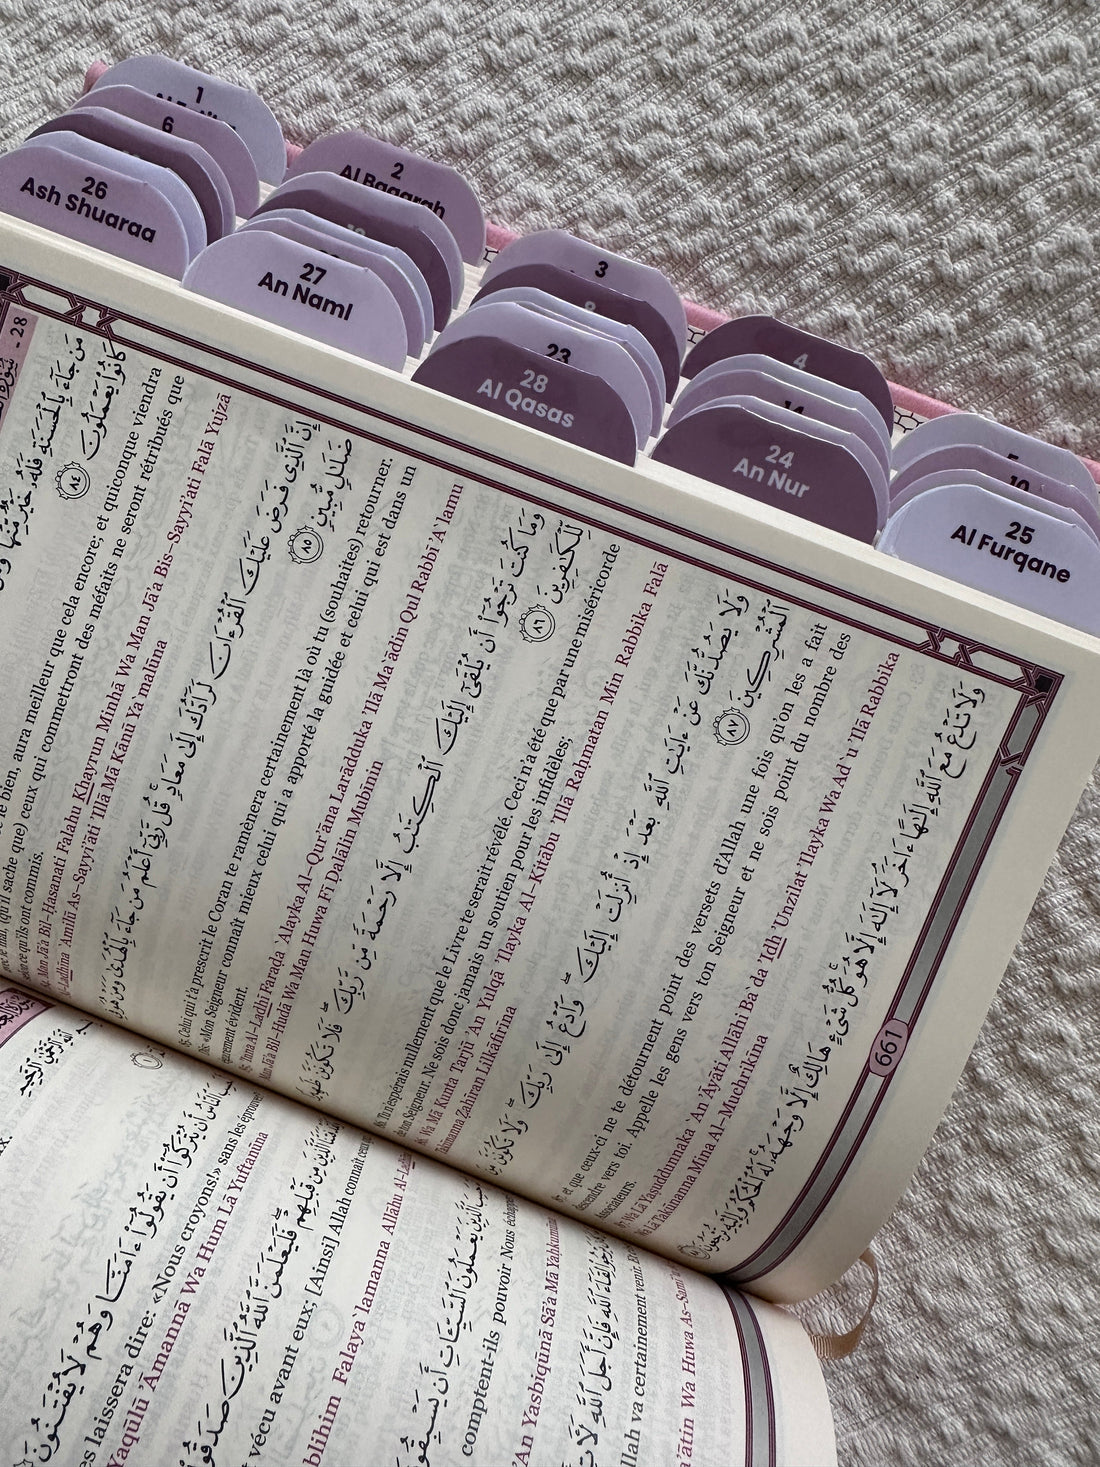 1
6
26
Ash Shuaraa
2
Al Baqarah
27
An Naml
3
8
23
28
Al Qasas
4
14
24
An Nur
5
10
25
Al Furqane
28
مَن جَآءَ بِٱلْحَسَنَةِ فَلَهُۥ خَيْرٌ مِّنْهَا
كَانُوا۟ يَعْمَلُونَ ٨٤
le bien, aura meilleur que cela encore; et quiconque viendra
(qu'il sache que) ceux qui commettront des méfaits ne seront rétribués que
ce qu'ils ont commis.
Man Jā'a Bil-Hasanati Falahu Khayrun Minhā Wa Man Jā'a Bis-Sayyi'ati Falā Yujzā
'Amilū As-Sayyi'āti 'Illā Mā Kānū Ya`malūna
إِنَّ ٱلَّذِى فَرَضَ عَلَيْكَ ٱلْقُرْءَانَ لَرَآدُّكَ إِلَىٰ مَعَادٍ قُل رَّبِّىٓ أَعْلَمُ مَن جَآءَ بِٱلْهُدَىٰ وَمَنْ هُوَ فِى
ضَلَٰلٍ مُّبِينٍ ٨٥
85. Celui qui t'a prescrit le Coran te ramènera certainement là où tu (souhaites) retourner.
Dis: «Mon Seigneur connaît mieux celui qui a apporté la guidée et celui qui est dans un
égarement évident.
85. 'Inna Al-Ladhī Faraḍa `Alayka Al-Qur'āna Larādduka 'Ilā Ma`ādin Qul Rabbī 'A`lamu
Man Jā'a Bil-Hudā Wa Man Huwa Fī Ḍalālin Mubīnin
وَمَا كُنتَ تَرْجُوٓا۟ أَن يُلْقَىٰٓ إِلَيْكَ ٱلْكِتَٰبُ إِلَّا رَحْمَةً مِّن رَّبِّكَ فَلَا تَكُونَنَّ ظَهِيرًا
لِّلْكَٰفِرِينَ ٨٦
86. Tu n'espérais nullement que le Livre te serait révélé. Ceci n'a été que par une miséricorde
de ton Seigneur. Ne sois donc jamais un soutien pour les infidèles;
86. Wa Mā Kunta Tarjū 'An Yulqā 'Ilayka Al-Kitābu 'Illā Raḥmatan Min Rabbika Falā
Takūnanna Ẓahīran Lilkāfirīna
وَلَا يَصُدُّنَّكَ عَنْ ءَايَٰتِ ٱللَّهِ بَعْدَ إِذْ أُنزِلَتْ إِلَيْكَ وَٱدْعُ إِلَىٰ رَبِّكَ وَلَا تَكُونَنَّ مِنَ
ٱلْمُشْرِكِينَ ٨٧
87. et que ceux-ci ne te détournent point des versets d'Allah une fois qu'on les a fait
descendre vers toi. Appelle les gens vers ton Seigneur et ne sois point du nombre des
Associateurs.
87. Wa Lā Yaṣuddunnaka `An 'Āyāti Allāhi Ba`da 'Idh 'Unzilat 'Ilayka Wa Ad`u 'Ilā Rabbika
Wa Lā Takūnanna Mina Al-Mushrikīna
وَلَا تَدْعُ مَعَ ٱللَّهِ إِلَٰهًا ءَاخَرَ لَآ إِلَٰهَ إِلَّا هُوَ كُلُّ شَىْءٍ هَالِكٌ إِلَّا وَجْهَهُۥ لَهُ ٱلْحُكْمُ وَإِلَيْهِ
تُرْجَعُونَ
661
ٱللَّهِ ٱلرَّحْمَٰنِ ٱلرَّحِيمِ
١
أَحَسِبَ ٱلنَّاسُ أَن يُتْرَكُوٓا۟ أَن يَقُولُوٓا۟ ءَامَنَّا وَهُمْ لَا يُفْتَنُونَ
laissera dire: «Nous croyons!» sans les éprouver
Yaqūlū 'Āmannā Wa Hum Lā Yuftanūna
مِن قَبْلِهِمْ فَلَيَعْلَمَنَّ ٱللَّهُ ٱلَّذِينَ صَدَقُوا۟
vécu avant eux; [Ainsi] Allah connaît ceux
Falaya`lamanna Allāhu Al-Ladhīna
حَسِبَ ٱلَّذِينَ يَعْمَلُونَ ٱلسَّيِّـَٔاتِ أَن يَسْبِقُونَا
comptent-ils pouvoir Nous échapper
'An Yasbiqūnā Sā'a Mā Yaḥkumūna
يَرْجُوا۟ لِقَآءَ ٱللَّهِ فَإِنَّ أَجَلَ ٱللَّهِ لَـَٔاتٍ
va certainement venir. Et
Wa Huwa As-Samī`